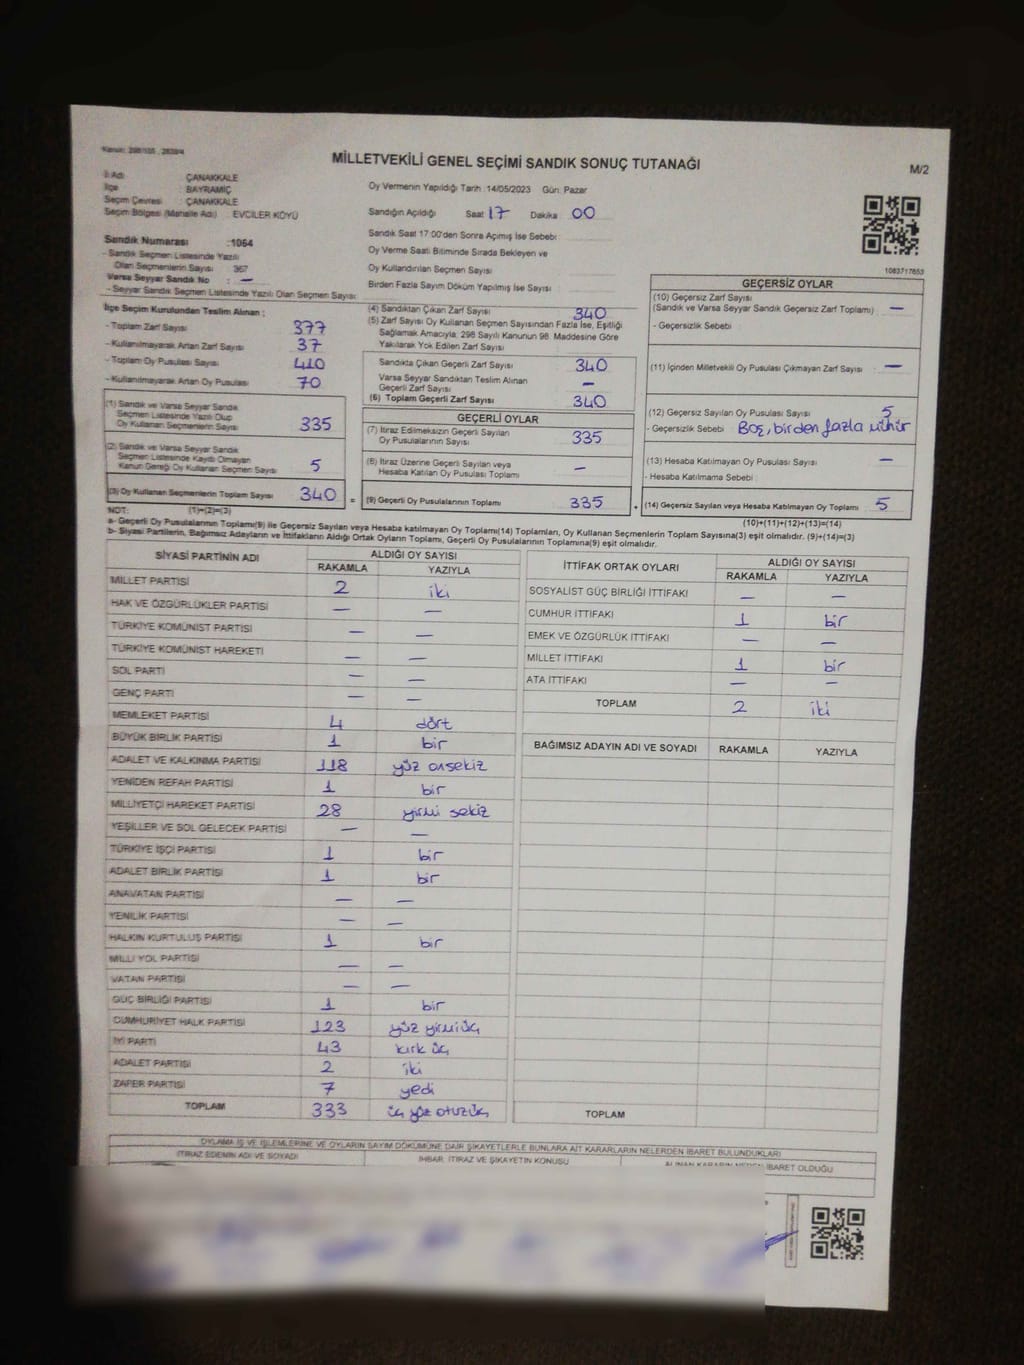 Kanun: 298/105 , 2839/4
MİLLETVEKİLİ GENEL SEÇİMİ SANDIK SONUÇ TUTANAĞI
M/2
İl Adı ÇANAKKALE
İlçe BAYRAMİÇ
Seçim Çevresi : ÇANAKKALE
Seçim Bölgesi (Mahalle Adı) : EVCİLER KÖYÜ
Sandık Numarası :1064
- Sandık Seçmen Listesinde Yazılı
Olan Seçmenlerin Sayısı 367
Varsa Seyyar Sandık No : —
- Seyyar Sandık Seçmen Listesinde Yazılı Olan Seçmen Sayısı:
Oy Vermenin Yapıldığı Tarih :14/05/2023 Gün: Pazar
Sandığın Açıldığı Saat 17 Dakika 00
Sandık Saat 17:00'den Sonra Açımış İse Sebebi:
Oy Verme Saati Bitiminde Sırada Bekleyen ve
Oy Kullandırılan Seçmen Sayısı
Birden Fazla Sayım Döküm Yapılmış İse Sayısı :
1083717653
İlçe Seçim Kurulundan Teslim Alınan ;
- Toplam Zarf Sayısı 377
- Kullanılmayarak Artan Zarf Sayısı 37
- Toplam Oy Pusulası Sayısı 410
- Kullanılmayarak Artan Oy Pusulası 70
(1) Sandık ve Varsa Seyyar Sandık
Seçmen Listesinde Yazılı Olup
Oy Kullanan Seçmenlerin Sayısı 335
(2) Sandık ve Varsa Seyyar Sandık
Seçmen Listesinde Kaydı Olmayan
Kanun Gereği Oy Kullanan Seçmen Sayısı 5
(3) Oy Kullanan Seçmenlerin Toplam Sayısı 340 =
(4) Sandıktan Çıkan Zarf Sayısı 340
(5) Zarf Sayısı Oy Kullanan Seçmen Sayısından Fazla İse, Eşitliği
Sağlamak Amacıyla; 298 Sayılı Kanunun 98. Maddesine Göre
Yakılarak Yok Edilen Zarf Sayısı
Sandıkta Çıkan Geçerli Zarf Sayısı 340
Varsa Seyyar Sandıktan Teslim Alınan
Geçerli Zarf Sayısı —
(6) Toplam Geçerli Zarf Sayısı 340
GEÇERLİ OYLAR
(7) İtiraz Edilmeksizin Geçerli Sayılan
Oy Pusulalarının Sayısı 335
(8) İtiraz Üzerine Geçerli Sayılan veya
Hesaba Katılan Oy Pusulası Toplamı —
(9) Geçerli Oy Pusulalarının Toplamı 335 +
GEÇERSİZ OYLAR
(10) Geçersiz Zarf Sayısı
(Sandık ve Varsa Seyyar Sandık Geçersiz Zarf Toplamı) —
- Geçersizlik Sebebi
(11) İçinden Milletvekili Oy Pusulası Çıkmayan Zarf Sayısı —
(12) Geçersiz Sayılan Oy Pusulası Sayısı 5
- Geçersizlik Sebebi Boş, birden fazla mühür
(13) Hesaba Katılmayan Oy Pusulası Sayısı —
- Hesaba Katılmama Sebebi
(14) Geçersiz Sayılan veya Hesaba Katılmayan Oy Toplamı 5
NOT: (1)+(2)=(3)
(10)+(11)+(12)+(13)=(14)
a- Geçerli Oy Pusulalarının Toplamı(9) ile Geçersiz Sayılan veya Hesaba katılmayan Oy Toplamı(14) Toplamları, Oy Kullanan Seçmenlerin Toplam Sayısına(3) eşit olmalıdır. (9)+(14)=(3)
b- Siyasi Partilerin, Bağımsız Adayların ve İttifakların Aldığı Ortak Oyların Toplamı, Geçerli Oy Pusulalarının Toplamına(9) eşit olmalıdır.
SİYASİ PARTİNİN ADI ALDIĞI OY SAYISI
RAKAMLA YAZIYLA
MİLLET PARTİSİ 2 iki
HAK VE ÖZGÜRLÜKLER PARTİSİ — —
TÜRKİYE KOMÜNİST PARTİSİ — —
TÜRKİYE KOMÜNİST HAREKETİ — —
SOL PARTİ — —
GENÇ PARTİ — —
MEMLEKET PARTİSİ 4 dört
BÜYÜK BİRLİK PARTİSİ 1 bir
ADALET VE KALKINMA PARTİSİ 118 yüz onsekiz
YENİDEN REFAH PARTİSİ 1 bir
MİLLİYETÇİ HAREKET PARTİSİ 28 yirmi sekiz
YEŞİLLER VE SOL GELECEK PARTİSİ — —
TÜRKİYE İŞÇİ PARTİSİ 1 bir
ADALET BİRLİK PARTİSİ 1 bir
ANAVATAN PARTİSİ — —
YENİLİK PARTİSİ — —
HALKIN KURTULUŞ PARTİSİ 1 bir
MİLLİ YOL PARTİSİ — —
VATAN PARTİSİ — —
GÜÇ BİRLİĞİ PARTİSİ 1 bir
CUMHURİYET HALK PARTİSİ 123 yüz yirmi üç
İYİ PARTİ 43 kırk üç
ADALET PARTİSİ 2 iki
ZAFER PARTİSİ 7 yedi
TOPLAM 333 üç yüz otuz üç
İTTİFAK ORTAK OYLARI ALDIĞI OY SAYISI
RAKAMLA YAZIYLA
SOSYALİST GÜÇ BİRLİĞİ İTTİFAKI — —
CUMHUR İTTİFAKI 1 bir
EMEK VE ÖZGÜRLÜK İTTİFAKI — —
MİLLET İTTİFAKI 1 bir
ATA İTTİFAKI — —
TOPLAM 2 iki
BAĞIMSIZ ADAYIN ADI VE SOYADI RAKAMLA YAZIYLA
TOPLAM
OYLAMA İŞ VE İŞLEMLERİNE VE OYLARIN SAYIM DÖKÜMÜNE DAİR ŞİKAYETLERLE BUNLARA AİT KARARLARIN NELERDEN İBARET BULUNDUKLARI
İTİRAZ EDENİN ADI VE SOYADI İHBAR, İTİRAZ VE ŞİKAYETİN KONUSU ALINAN KARARIN NEDEN İBARET OLDUĞU